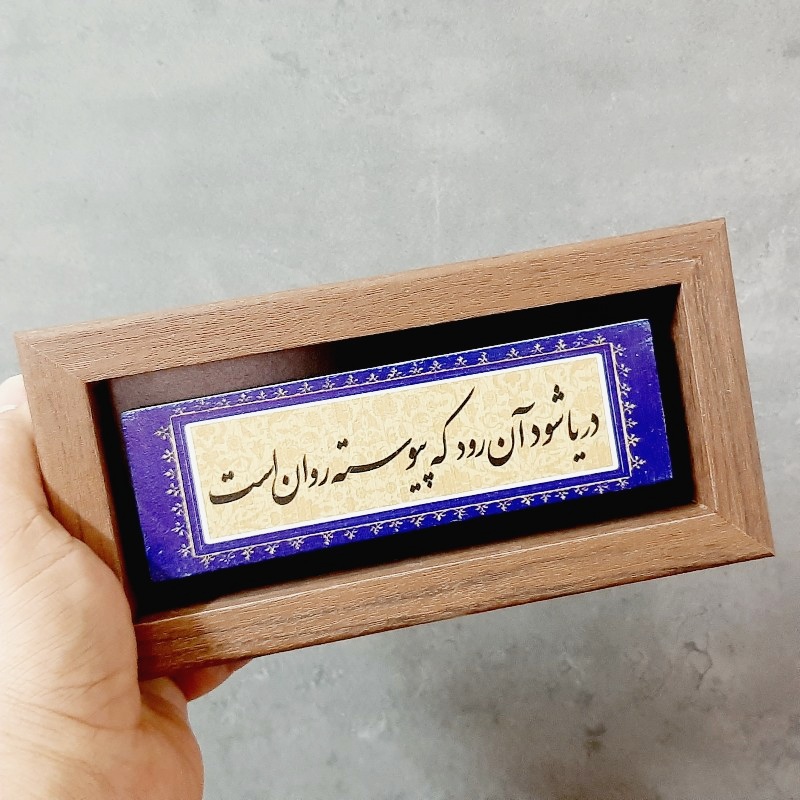 دریا شود آن رود که پیوسته روان است